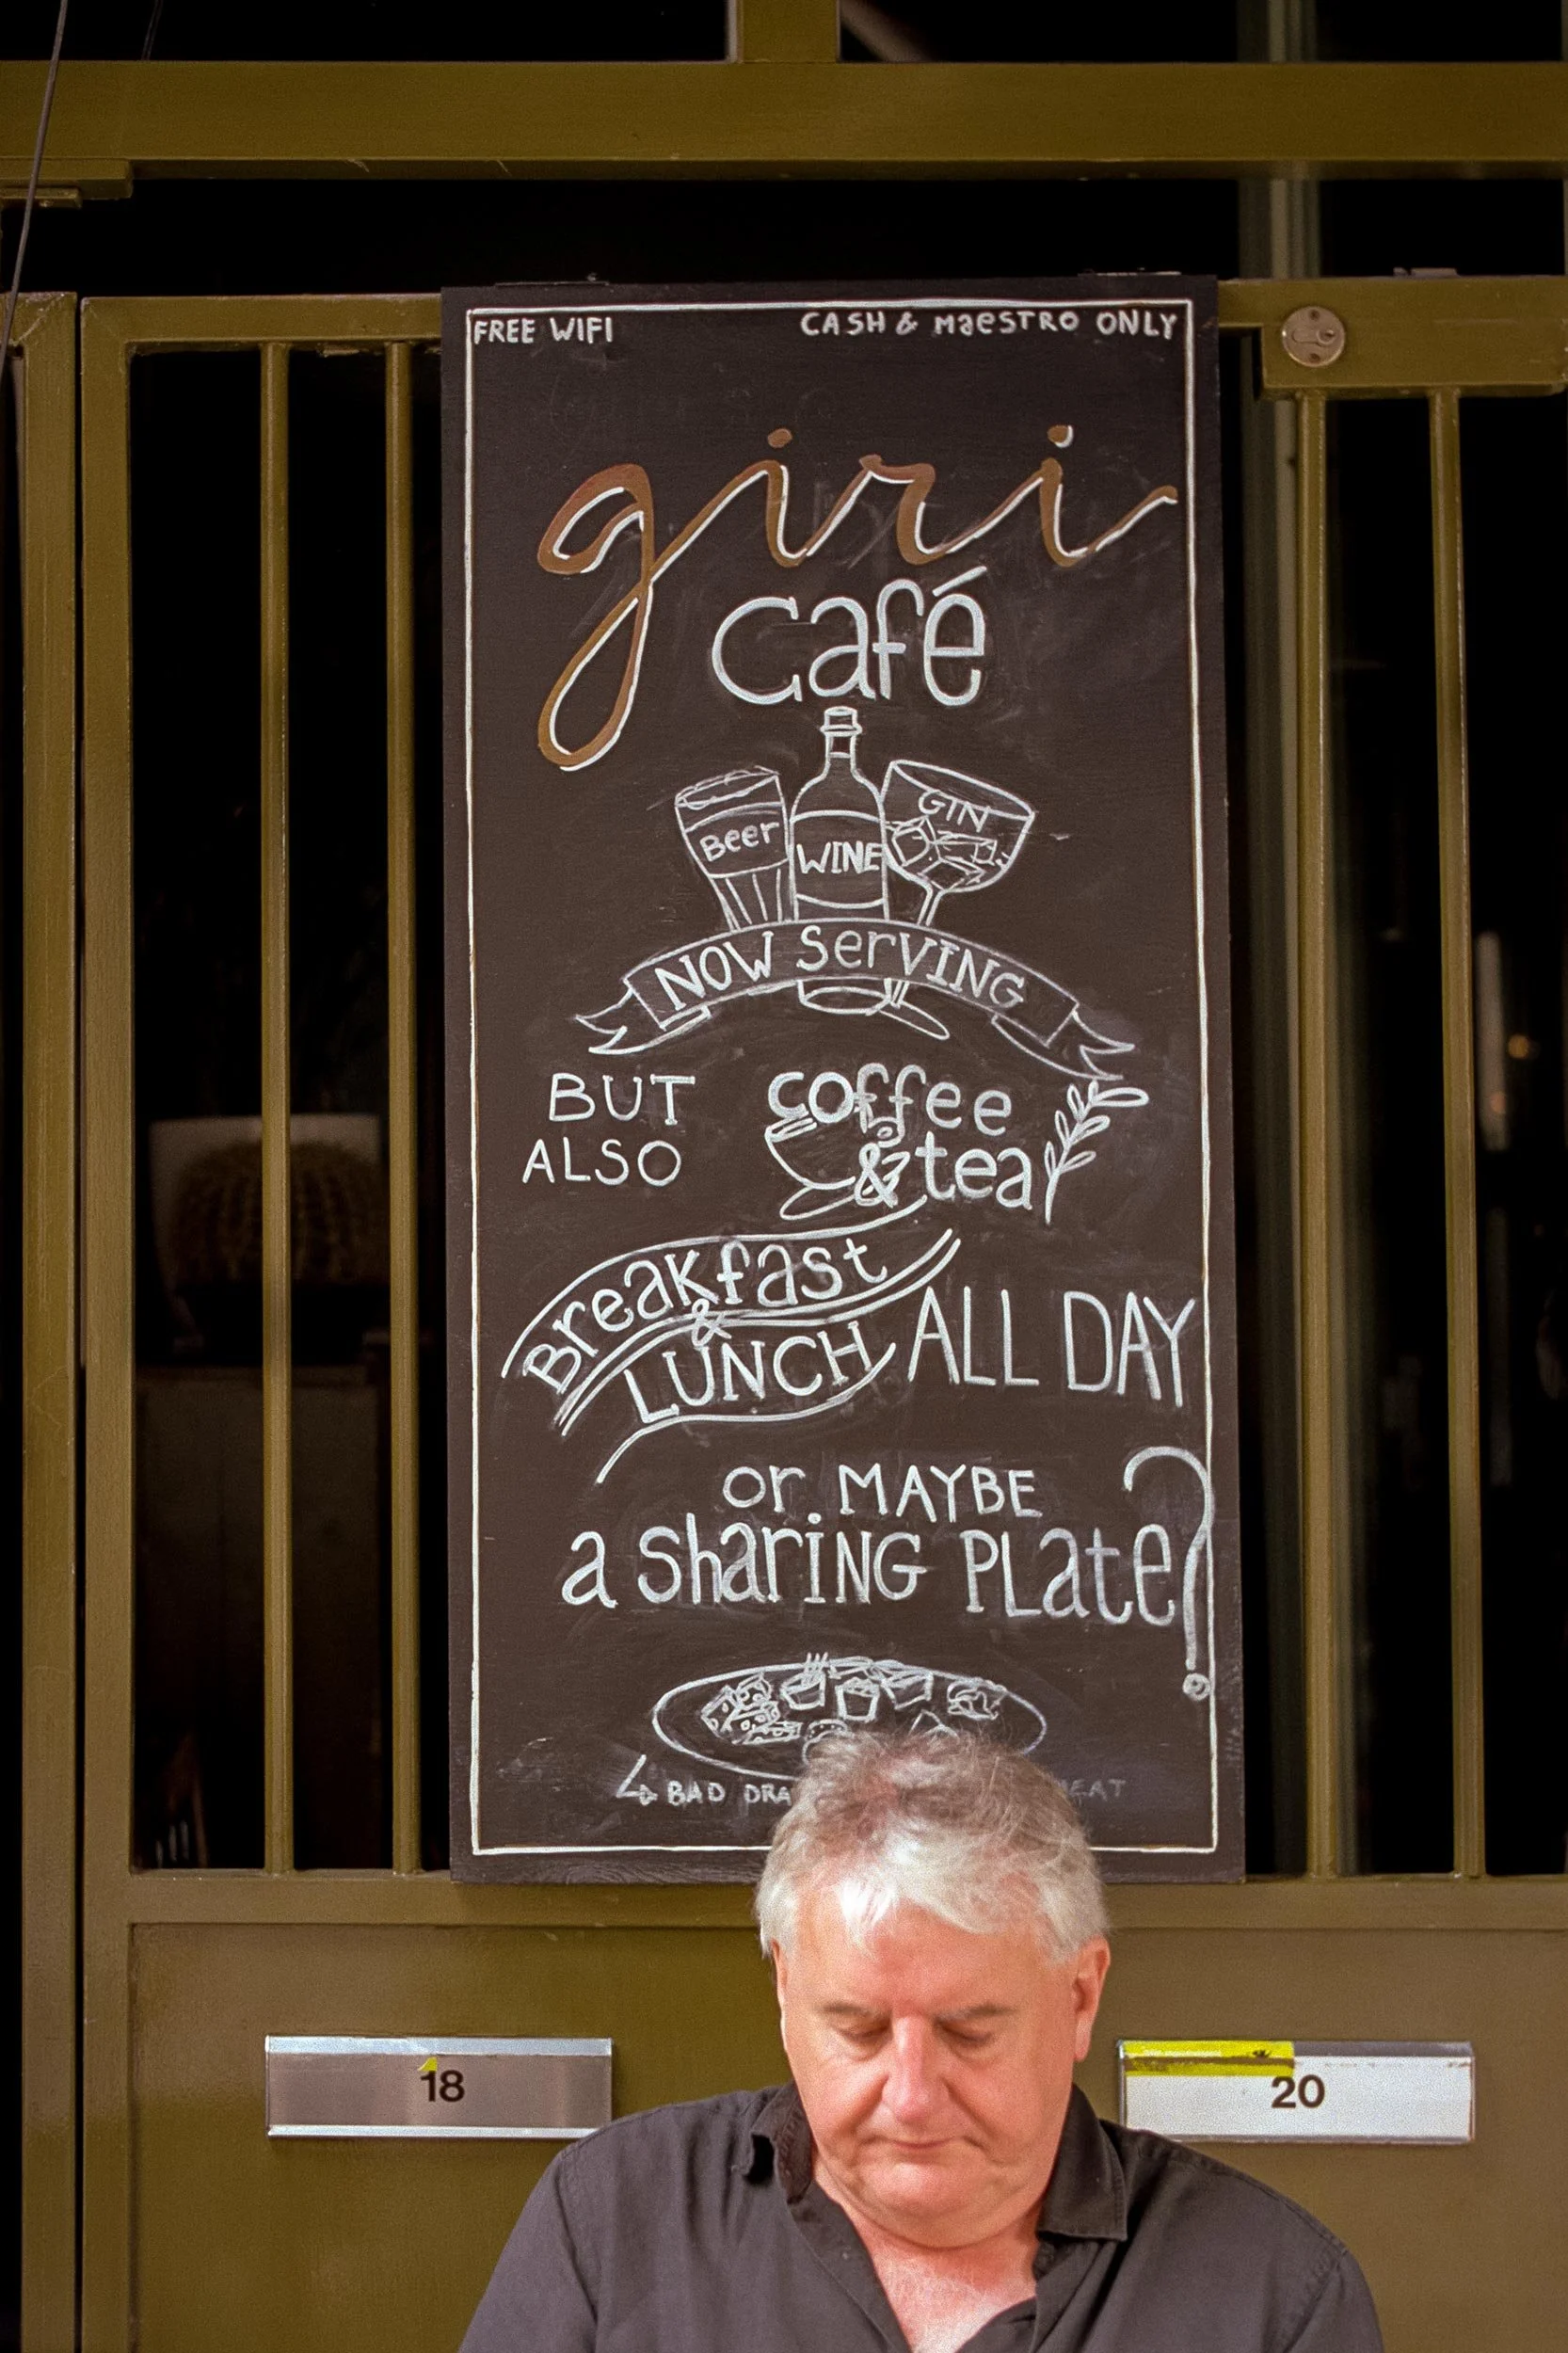 FREE WIFI
CASH & MaeSTRO ONLY
giri
café
Beer
WINE
GIN
NOW SerVING
BUT
ALSO
coffee
& tea
Breakfast
&
LUNCH
ALL DAY
or MAYBE
a sharING PLate?
BAD
18
20